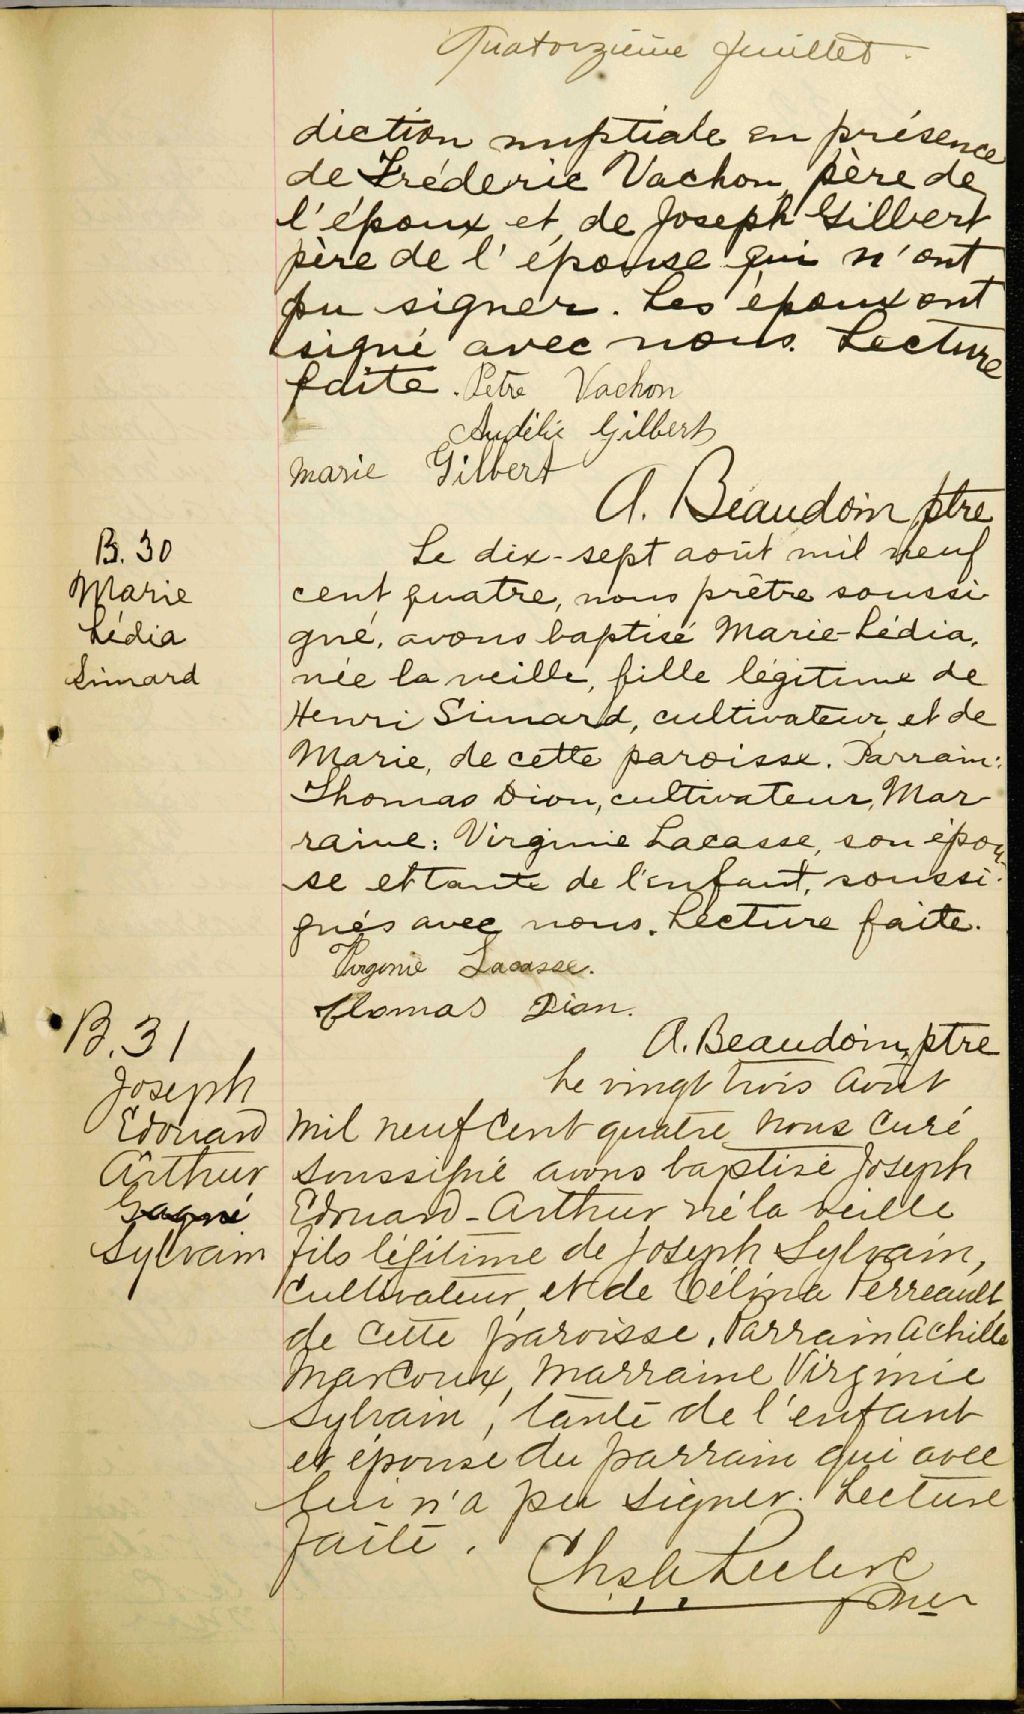 Quatorzième feuillet.
diction nuptiale en présence
de Fréderic Vachon, père de
l'époux et de Joseph Gilbert
père de l'épouse qui n'ont
pu signer. Les époux ont
signé avec nous. Lecture
faite. Petre Vachon
Audélie Gilbert
Marie Gilbert
A. Beaudoin, ptre
B. 30
Marie
Lédia
Simard
Le dix-sept août mil neuf
cent quatre, nous prêtre soussi-
gné, avons baptisé Marie-Lédia,
née la veille, fille légitime de
Henri Simard, cultivateur, et de
Marie, de cette paroisse. Parrain:
Thomas Dion, cultivateur, Mar-
raine: Virginie Lacasse, son épou-
se et tante de l'enfant, soussi-
gnés avec nous. Lecture faite.
Virginie Lacasse.
Thomas Dion.
A. Beaudoin, ptre
B. 31
Joseph
Edouard
Arthur
Gagné
Sylvain
Le vingt trois Août
mil neuf cent quatre nous curé
soussigné avons baptisé Joseph
Edouard-Arthur né la veille
fils légitime de Joseph Sylvain,
cultivateur, et de Célina Perreault,
de cette paroisse. Parrain Achille
Marcoux, Marraine Virginie
Sylvain, tante de l'enfant
et épouse du parrain qui avec
lui n'a pu signer. Lecture
faite.
Leclerc